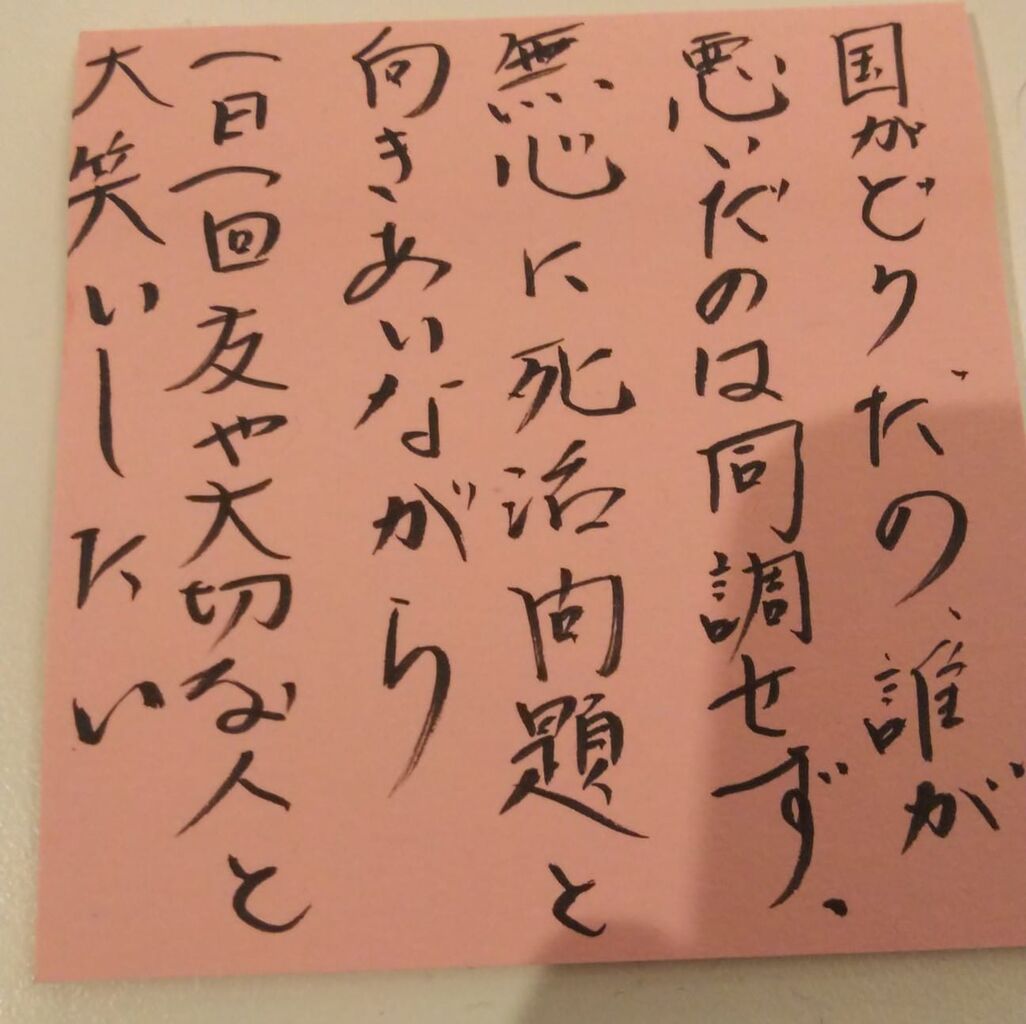 国がどりだの、誰が
悪いだのは同調せず、
無心に死活問題と
向きあいながら
一日一回友や大切な人と
大笑いしたい